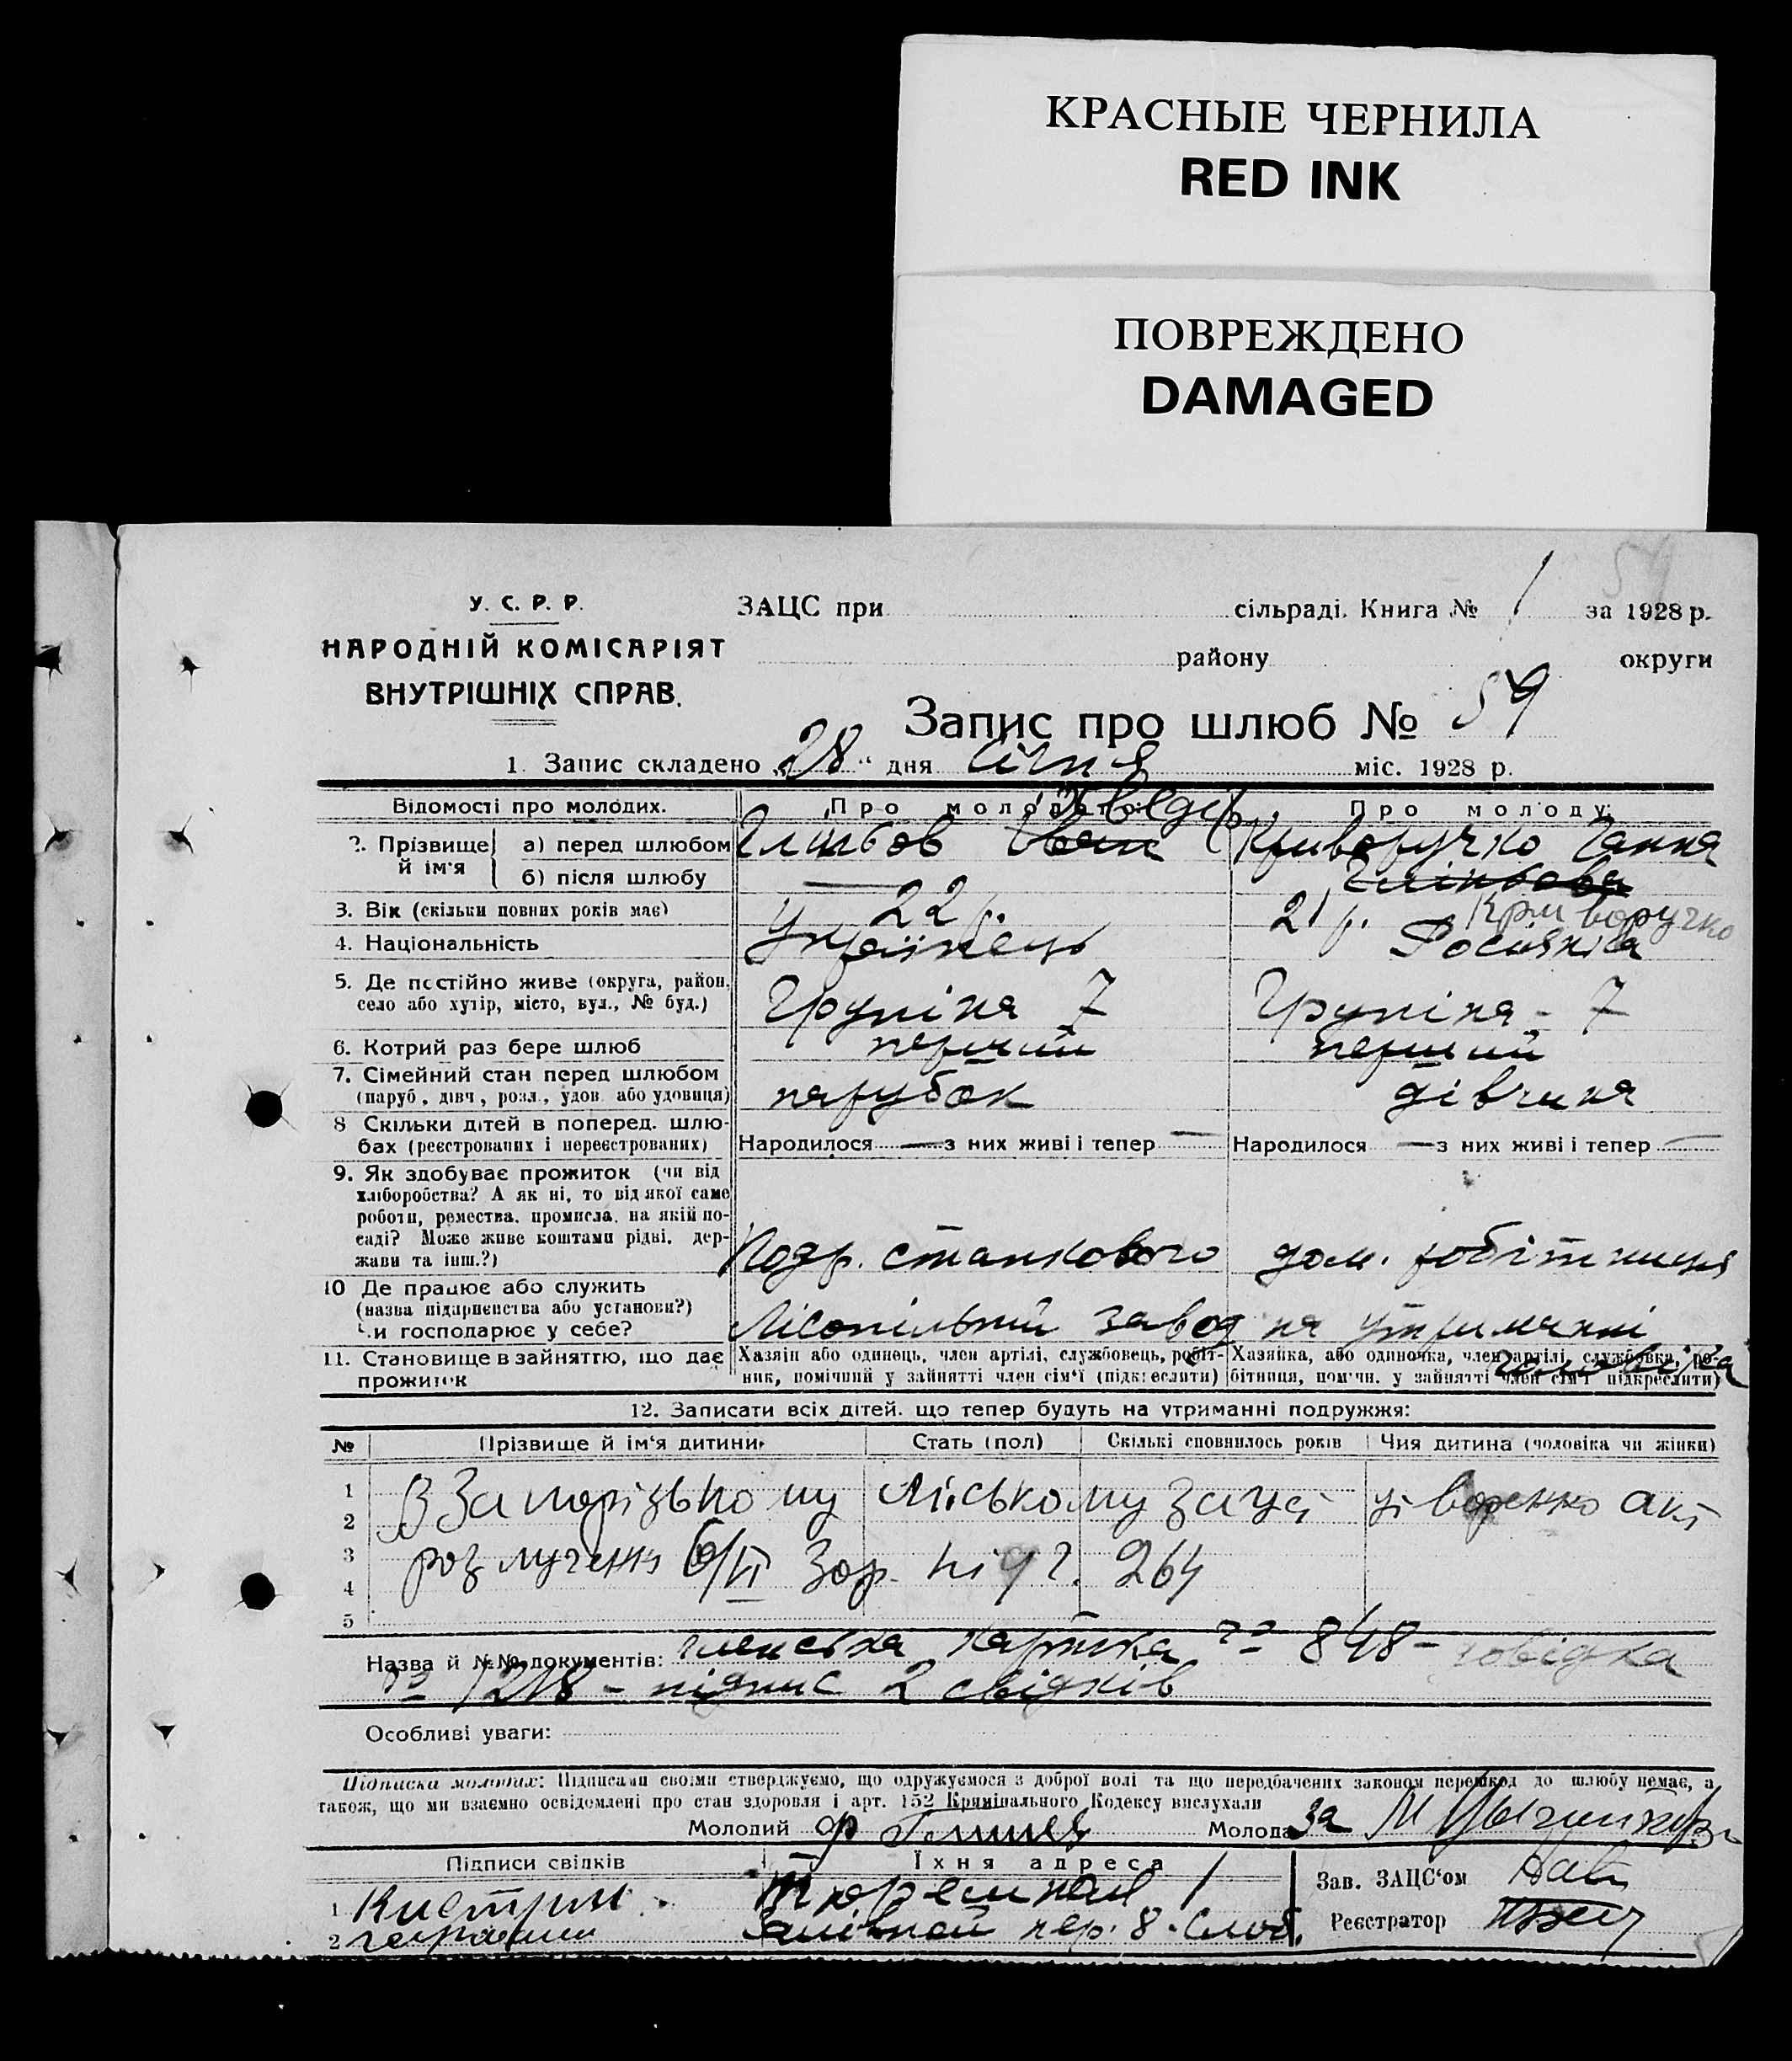 КРАСНЫЕ ЧЕРНИЛА
RED INK
ПОВРЕЖДЕНО
DAMAGED
54
У. С. Р. Р.
НАРОДНІЙ КОМІСАРІЯТ
ВНУТРІШНІХ СПРАВ.
ЗАЦС при сільраді. Книга № 1 за 1928 р.
району округи
Запис про шлюб № 59
1. Запис складено „28“ дня Січня міс. 1928 р.
Відомості про молодих. Про молодого Про молоду
2. Прізвище й ім'я а) перед шлюбом Криворучко Ганна
б) після шлюбу — Криворучко
3. Вік (скільки повних років має) 22 р. 21 р.
4. Національність Українець Росіянка
5. Де постійно живе (округа, район, село або хутір, місто, вул., № буд.) 7 7
6. Котрий раз бере шлюб перший перший
7. Сімейний стан перед шлюбом (паруб., дівч., розл., удов. або удовиця) парубок дівчина
8 Скільки дітей в поперед. шлюбах (реєстрованих і нереєстрованих) Народилося — з них живі і тепер — Народилося — з них живі і тепер —
9. Як здобуває прожиток (чи від хліборобства? А як ні, то від якої саме роботи, ремества, промисла, на якій посаді? Може живе коштами рідні, держави та інш.?) станкового дом. робітниця
10 Де працює або служить (назва підприємства або установи?) Чи господарює у себе? Лісопільний завод на утриманні чоловіка
11. Становище в зайняттю, що дає прожиток Хазяін або одинець, член артілі, службовець, робітник, помічний у зайнятті член сім'ї (підкреслити) Хазяйка, або одиночка, член артілі, службовка, робітниця, поміч. у зайнятті член сім'ї підкреслити)
12. Записати всіх дітей, що тепер будуть на утриманні подружжя:
№ Прізвище й ім'я дитини Стать (пол) Скількі сповнилось років Чия дитина (чоловіка чи жінки)
1 В Запорізькому Міському Загсі акт
2
3 розлучення 264
4
5
Назва й №№ документів: членська картка № 848 – довідка
№ 1218 – підпис 2 свідків
Особливі уваги:
Підписка молодих: Підписами своїми стверджуємо, що одружуємося з доброї волі та що передбачених законом перешкод до шлюбу немає, а
також, що ми взаємно освідомлені про стан здоровля і арт. 152 Крімінального Кодексу вислухали
Молодий Молода за
Підписи свідків Їхня адреса Зав. ЗАЦС'ом
1 1
2 пер. 8 Реєстратор